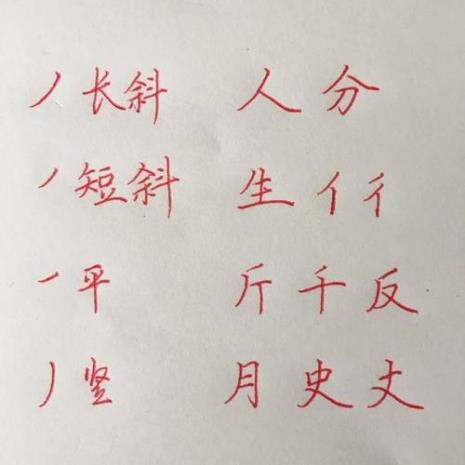 丿长斜 人分
丿短斜 生亻彳
㇀平 斤千反
丿竖 月史丈